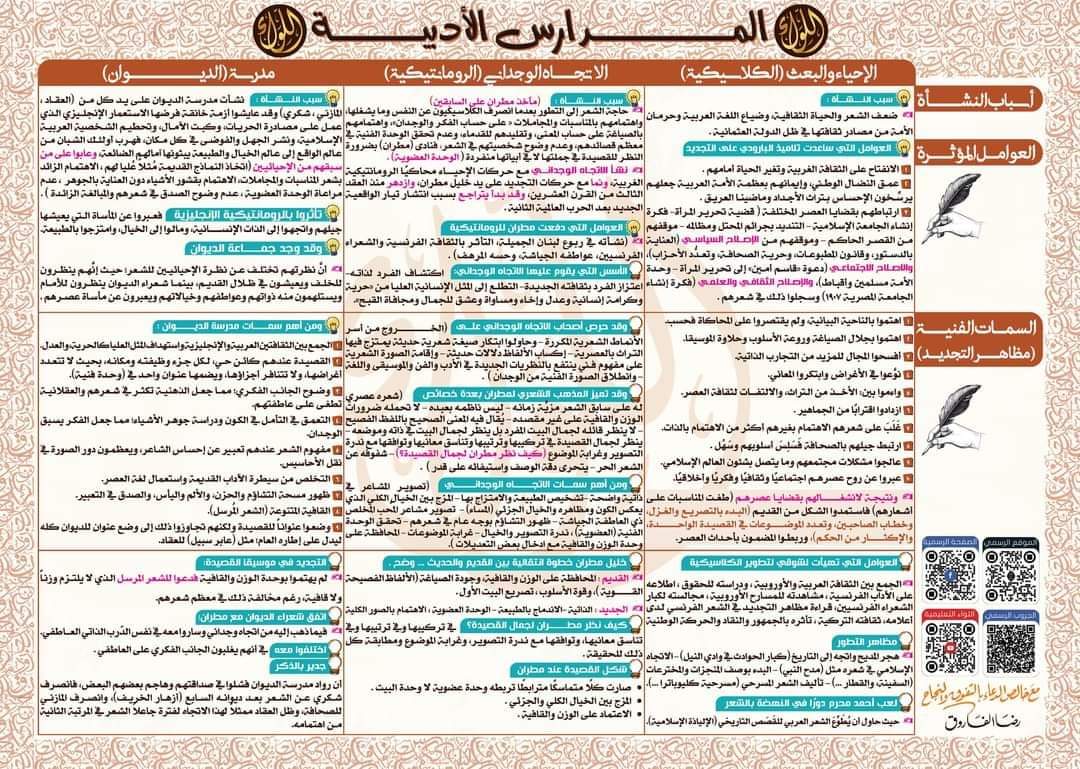 المدارس الأدبية
الإحياء والبعث (الكلاسيكية)
الاتجاه الوجداني (الرومانتيكية)
مدرسة (الديوان)
أسباب النشأة
العوامل المؤثرة
السمات الفنية
(مظاهر التجديد)
سبب النشأة :
ضعف الشعر والحياة الثقافية، وضياع اللغة العربية وحرمان
الأمة من مصادر ثقافتها في ظل الدولة العثمانية.
العوامل التي ساعدت تلاميذ البارودي على التجديد
١ الانفتاح على الثقافة الغربية وتغير الحياة أمامهم.
٢ عمق النضال الوطني، وإيمانهم بعظمة الأمة العربية جعلهم
يرسّخون الإحساس بتراث الأجداد وماضينا العريق.
٣ ارتباطهم بقضايا العصر المختلفة (قضية تحرير المرأة- فكرة
إنشاء الجامعة الإسلامية - التنديد بجرائم المحتل ومظالمه - موقفهم
من القصر الحاكم - وموقفهم من الإصلاح السياسي (العناية
بالدستور، وقانون المطبوعات، وحرية الصحافة، وتعدد الأحزاب)،
والإصلاح الاجتماعي (دعوة «قاسم أمين» إلى تحرير المرأة - وحدة
الأمة مسلمين وأقباط)، والإصلاح الثقافي والعلمي (فكرة إنشاء
الجامعة المصرية ١٩٠٧) وسجلوا ذلك في شعرهم.
١ اهتموا بالناحية البيانية، ولم يقتصروا على المحاكاة فحسب.
٢ اهتموا بجلال الصياغة وروعة الأسلوب وحلاوة الموسيقا.
٣ أفسحوا المجال للمزيد من التجارب الذاتية.
٤ نوّعوا في الأغراض وابتكروا المعاني.
٥ واءموا بين: الأخذ من التراث، والالتفات لثقافة العصر.
٦ ازدادوا اقترابًا من الجماهير.
٧ غلّب على شعرهم الاهتمام بغيرهم أكثر من الاهتمام بالذات.
٨ ارتبط جيلهم بالصحافة فسلس أسلوبهم وسهُل.
٩ عالجوا مشكلات مجتمعهم وما يتصل بشئون العالم الإسلامي.
عبروا عن روح عصرهم اجتماعيًا وثقافيًا وفكريًا وأخلاقيًا.
ونتيجة لانشغالهم بقضايا عصرهم (طغت المناسبات على
أشعارهم) فاستمدوا الشكل من القديم (البدء بالتصريع والغزل،
وخطاب الصاحبين، وتعدد الموضوعات في القصيدة الواحدة،
والإكثار من الحكم)، وربطوا المضمون بأحداث العصر.
العوامل التي تهيأت لشوقي لتطوير الكلاسيكية
الجمع بين الثقافة العربية والأوروبية، ودراسته للحقوق، اطلاعه
على الآداب الفرنسية، مشاهدته للمسارح الأوروبية، مجالسته لكبار
الشعراء الفرنسيين، قراءة مظاهر التجديد في الشعر الفرنسي لدى
أعلامه، ثقافته التركية، تأثره بالجمهور والنقاد والحركة الوطنية
مظاهر التطور
هجر المديح واتجه إلى التاريخ (كبار الحوادث في وادي النيل) - الاتجاه
الإسلامي في شعره مثل (مدح النبي) - البدء بوصف المنجزات والمخترعات
(السفينة، والقطار ...) - تأليف الشعر المسرحي (مسرحية كليوباترا ...).
لعب أحمد محرم دورًا في النهضة بالشعر
حيث حاول أن يُطوّع الشعر العربي للقصص التاريخي (الإلياذة الإسلامية).
سبب النشأة : (مآخذ مطران على السابقين)
حاجة الشعر إلى التطور بعدما انصرف الكلاسيكيون عن النفس وما يشغلها،
واهتمامهم بالمناسبات والمجاملات « على حساب الفكر والوجدان»، واهتمامهم
بالصياغة على حساب المعنى، وتقليدهم للقدماء، وعدم تحقق الوحدة الفنية في
معظم قصائدهم، وعدم وضوح شخصيتهم في شعرهم، فنادى (مطران) بضرورة
النظر للقصيدة في جملتها لا في أبياتها منفردة (الوحدة العضوية).
نشأ الاتجاه الوجداني مع حركات الإحياء محاكيًا الرومانتيكية
الغربية، ونما مع حركات التجديد على يد خليل مطران، وازدهر منذ العقد
الثالث من القرن العشرين، وقد بدأ يتراجع بسبب انتشار تيار الواقعية
الجديد بعد الحرب العالمية الثانية.
العوامل التي دفعت مطران للرومانتيكية
(نشأته في ربوع لبنان الجميلة، التأثر بالثقافة الفرنسية والشعراء
الفرنسيين، عواطفه الجياشة، وحسه المرهف).
الأسس التي يقوم عليها الاتجاه الوجداني: اكتشاف الفرد لذاته-
اعتزاز الفرد بثقافته الجديدة- التطلع إلى المثل الإنسانية العليا من «حرية
وكرامة إنسانية وعدل وإخاء ومساواة وعشق للجمال ومجافاة القبح».
وقد حرص أصحاب الاتجاه الوجداني على (الخروج من أسر
الأنماط الشعرية المكررة - وحاولوا ابتكار صيغة شعرية حديثة يمتزج فيها
التراث بالعصرية - إكساب الألفاظ دلالات حديثة - وإقامة الصورة الشعرية
على مفهوم فني ينتفع بالنظريات الجديدة في الأدب والفن والموسيقى واللغة
- وانطلاق الصورة الفنية من الوجدان).
وقد تميز المذهب الشعري لمطران بعدة خصائص (شعره عصري
له على سابق الشعر مزيّة زمانه - ليس ناظمه بعبده - لا تحمله ضرورات
الوزن والقافية على غير مقصده - يُقال فيه المعنى الصحيح باللفظ الفصيح
- لا ينظر قائله لجمال البيت المفرد بل ينظر لجمال البيت في ذاته وموضعه -
ينظر لجمال القصيدة في تركيبها وترتيبها وتناسق معانيها وتوافقها مع ندرة
التصوير وغرابة الموضوع (كيف نظر مطران لجمال القصيدة؟) - شفوفه عن
الشعر الحر - يتحرى دقة الوصف واستيفائه على قدر).
ومن أهم سمات الاتجاه الوجداني (تصوير المشاعر في
ذاتية واضحة - تشخيص الطبيعة والامتزاج بها - المزج بين الخيال الكلي الذي
يعكس الكون ومظاهره والخيال الجزئي (المساء) - تصوير مشاعر المحب المخلص
ذي العاطفة الجياشة - ظهور التشاؤم بوجه عام في شعرهم - تحقق الوحدة
الفنية (العضوية)، ندرة التصوير والخيال - غرابة الموضوعات - المحافظة على
وحدة الوزن والقافية مع إدخال بعض التعديلات).
خليل مطران خطوة انتقالية بين القديم والحديث ... وضح.
القديم : (المحافظة على الوزن والقافية، وجودة الصياغة (الألفاظ الفصيحة
القوية)، وقوة الأسلوب، تصريع البيت الأول.
الجديد : الذاتية -الاندماج بالطبيعة - الوحدة العضوية - الاهتمام بالصور الكلية
كيف نظر مطران لجمال القصيدة؟ في تركيبها وفي ترتيبها وفي
تناسق معانيها، وتوافقها مع ندرة التصوير، وغرابة الموضوع ومطابقة كل
ذلك للحقيقة.
شكل القصيدة عند مطران
صارت كلًا متماسكًا مترابطًا تربطه وحدة عضوية لا وحدة البيت.
المزج بين الخيال الكلي والجزئي.
الاعتماد على الوزن والقافية.
سبب النشأة : نشأت مدرسة الديوان على يد كل من (العقاد،
المازني، شكري) وقد عايشوا أزمة خانقة فرضها الاستعمار الإنجليزي الذي
عمل على مصادرة الحريات، وكبت الآمال، وتحطيم الشخصية العربية
الإسلامية، ونشر الجهل والفوضى في كل مكان، فهرب أولئك الشبان من
عالم الواقع إلى عالم الخيال والطبيعة يبثونها آمالهم الضائعة، وعابوا على من
سبقهم من الإحيائيين (اتخاذ النماذج القديمة مُثلًا عُليا لهم، الاهتمام الزائد
بشعر المناسبات والمجاملات، الاهتمام بقشور الأشياء دون العناية بالجوهر، عدم
مراعاة الوحدة العضوية، عدم وضوح الصدق في شعرهم والمبالغة الزائدة).
تأثروا بالرومانتيكية الإنجليزية فعبروا عن المأساة التي يعيشها
جيلهم واتجهوا إلى الذات الإنسانية، ومالوا إلى الخيال، وامتزجوا بالطبيعة.
وقد وجد جماعة الديوان
أنّ نظرتهم تختلف عن نظرة الإحيائيين للشعر؛ حيث إنّهم ينظرون
للخلف ويعيشون في ظلال القديم، بينما شعراء الديوان ينظرون للأمام
ويستلهمون منه ذواتهم وعواطفهم وخيالاتهم ويعبرون عن مأساة عصرهم.
ومن أهم سمات مدرسة الديوان :
١ الجمع بين الثقافتين العربية والإنجليزية واستهداف المثل العليا كالحرية والعدل.
٢ القصيدة عندهم كائن حي، لكل جزء وظيفته ومكانه، بحيث لا تتعدد
أغراضها، ولا تتنافر أجزاؤها، ويضمها عنوان واحد في (وحدة فنية).
٣ وضوح الجانب الفكري؛ مما جعل الذهنية تكثر في شعرهم والعقلانية
تطغى على عاطفتهم.
٤ التعمق في التأمل في الكون ودراسة جوهر الأشياء؛ مما جعل الفكر يسبق
الوجدان.
٥ مفهوم الشعر عندهم تعبير عن إحساس الشاعر، ويعظمون دور الصورة في
نقل الأحاسيس.
٦ التخلص من سيطرة الآداب القديمة واستعمال لغة العصر.
٧ ظهور مسحة التشاؤم والحزن، والألم واليأس، والصدق في التعبير.
٨ القافية المتنوعة (الشعر المرسل).
٩ وضعوا عنوانًا للقصيدة ولكنهم تجاوزوا ذلك إلى وضع عنوان للديوان كله
ليدل على إطاره العام؛ مثل: (عابر سبيل) للعقاد.
التجديد في موسيقا القصيدة:
لم يهتموا بوحدة الوزن والقافية فدعوا للشعر المرسل الذي لا يلتزم وزنًا
ولا قافية، رغم مخالفة ذلك في معظم شعرهم.
اتفق شعراء الديوان مع مطران:
فيما ذهب إليه من اتجاه وجداني وساروا معه في نفس الدرب الذاتي العاطفي.
اختلفوا معه في أنهم يغلبون الجانب الفكري على العاطفي.
جدير بالذكر
أن رواد مدرسة الديوان فشلوا في صداقتهم وهاجم بعضهم البعض، فانصرف
شكري عن الشعر بعد ديوانه السابع (أزهار الخريف)، وانصرف المازني
للصحافة، وظل العقاد ممثلًا لهذا الاتجاه لفترة جاعلًا الشعر في المرتبة الثانية
من اهتمامه.
الموقع الرسمي
الصفحة الرسمية
الجروب الرسمي
اللواء التعليمية
مع خالص الدعاء بالتفوق والنجاح
رضا الفاروق